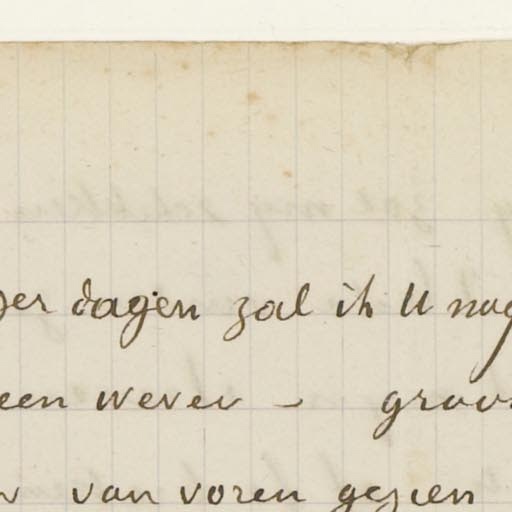 der dagen zal ik U nog
een wever – groot
van voren gezien